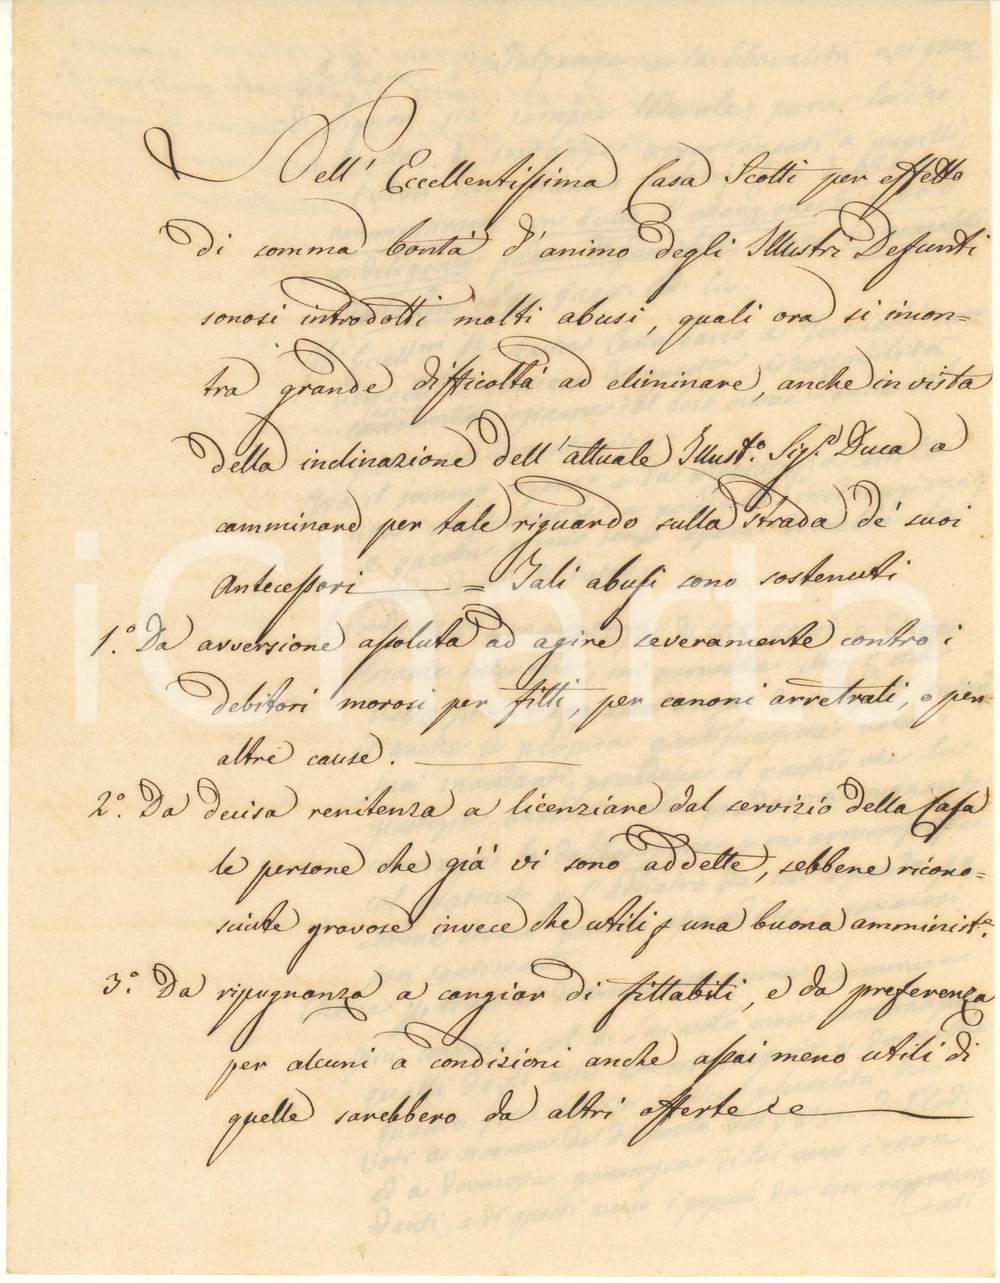 Nell' Eccellentissima Casa Scotti per effetto
di somma bontà d'animo degli Illustri Defunti
sonosi introdotti molti abusi, quali ora si incon=
tra grande difficoltà ad eliminare, anche in vista
della inclinazione dell'attuale Illust.º Sig.r Duca a
camminare per tale riguardo sulla strada de' suoi
Antecessori = Tali abusi sono sostenuti
1.º Da avversione assoluta ad agire severamente contro i
debitori morosi per fitti, per canoni arretrati, o per
altre cause.
2.º Da decisa renitenza a licenziare dal servizio della Casa
le persone che già vi sono addette, sebbene ricono=
sciute gravose invece che utili p una buona amminist.e
3.º Da ripugnanza a cangiar di fittabili, e da preferenza
per alcuni a condizioni anche assai meno utili di
quelle sarebbero da altri offerte e
iCharta